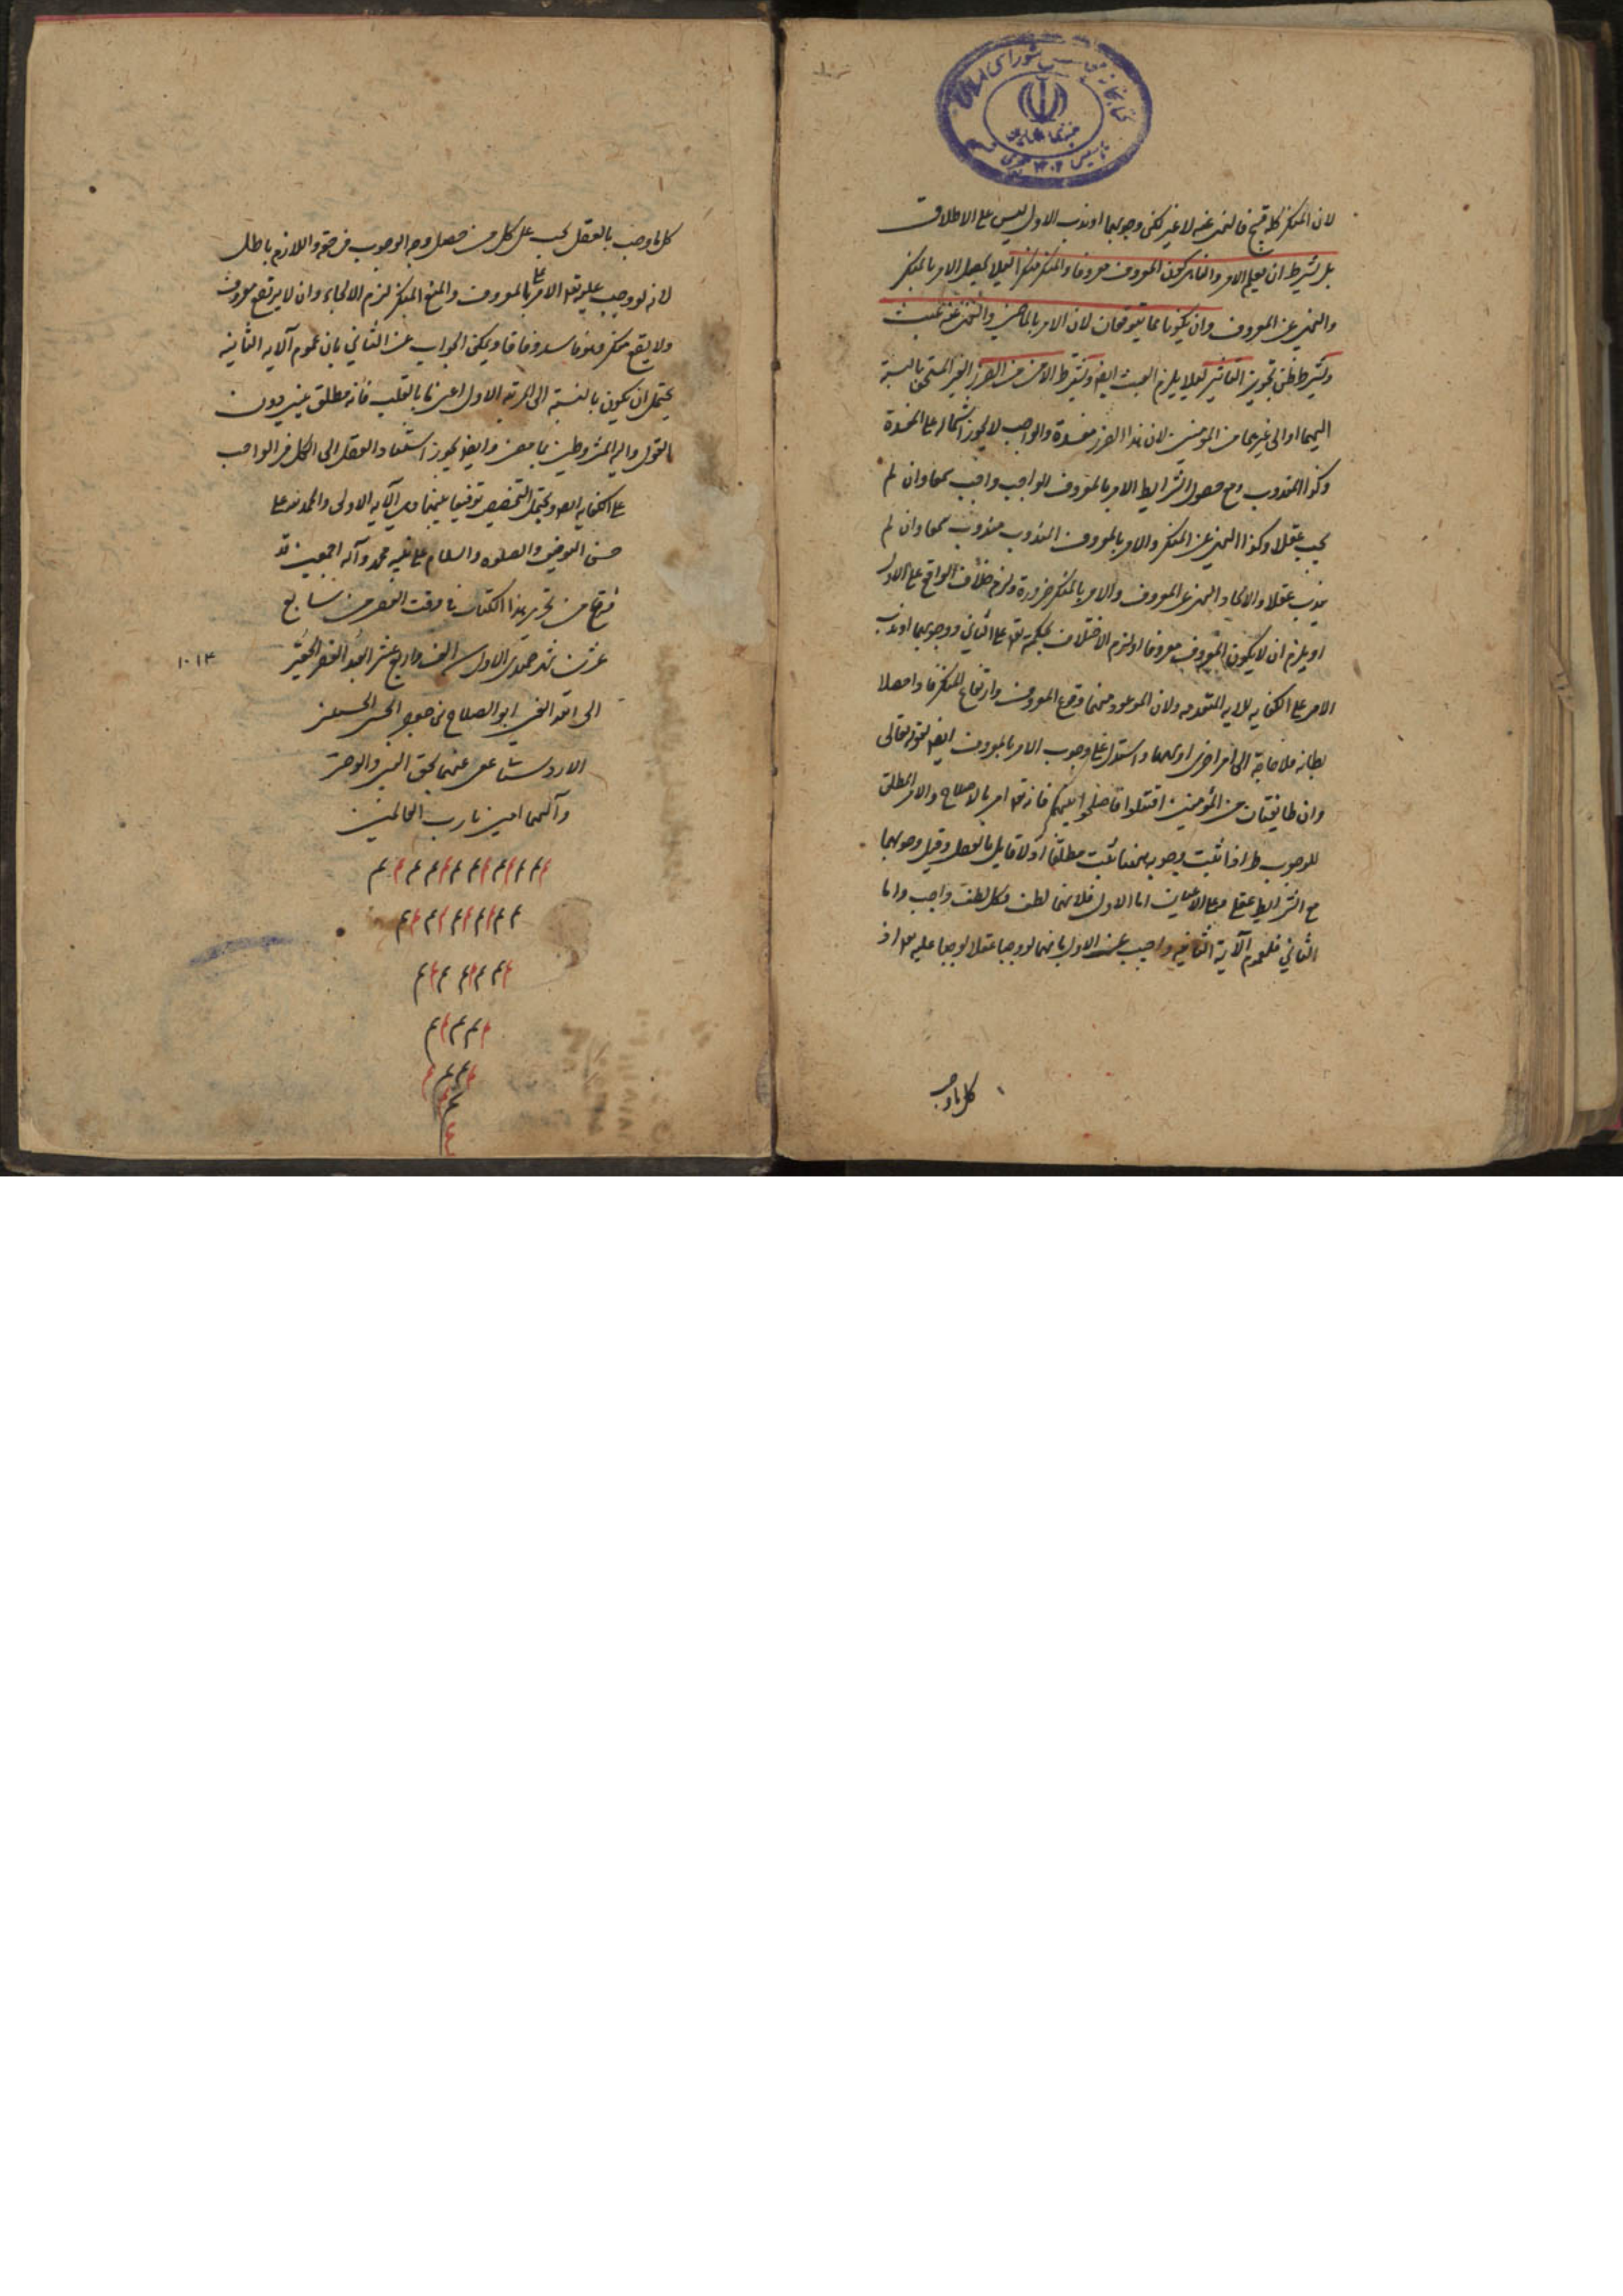 لان المنكر كله قبيح فالنهى عنه لا غير لكن وجوبهما او ندب الاول ليس على الاطلاق
بل بشرط ان يعلم الامر والناهى كون المعروف معروفا والمنكر منكرا لئلا يحصل الامر بالمنكر
والنهى عن المعروف وان يكونا مما يتوقعان لان الامر بالماضى والنهى عنه عبث
وبشرط ظن تجويز التاثير لئلا يلزم العبث ايضا وبشرط الامن من الضرر الغير المستحق بالنسبة
اليهما او الى غيرهما من المؤمنين لان هذا الضرر مفسدة والواجب لا يجوز اشتماله على المفسدة
وكذا المندوب ومع حصول الشرايط الامر بالمعروف الواجب واجب سمعا وان لم
يجب عقلا وكذا النهى عن المنكر والامر بالمعروف المندوب مندوب سمعا وان لم
يندب عقلا والا لجاز النهى عن المعروف والامر بالمنكر ضرورة ولزم خلاف الواقع على الاول
او يلزم ان لا يكون المعروف معروفا او لزم الاختلاف بحكمته تع على الثانى ووجوبهما او ندب
الامر على الكفاية للاية المتقدمة ولان الموعود منهما وقوع المعروف وارتفاع المنكر فاذا حصلا
بطائفة فلا حاجة الى اخرى او بهما واستدل على وجوب الامر بالمعروف ايضا بقوله تعالى
وان طايفتان من المؤمنين اقتتلوا فاصلحوا بينهما فانه تع امر بالاصلاح والامر المطلق
للوجوب فاذا ثبت وجوبه ههنا ثبت مطلقا اذ لا قايل بالفصل وقيل وجوبهما
مع الشرايط عقلى وعلى الاعيان اما الاول فلانهما لطف وكل لطف واجب واما
الثانى فلعموم الآية الثانية واجيب عن الاول بانهما لو وجبا عقلا لوجبا عليه تع اذ
كل ما وجب
كل ما وجب بالعقل يجب على كل من حصل وجه الوجوب فى حقه واللازم باطل
لانه لو وجب عليه تع الامر بالمعروف والمنع المنكر لزم الالجاء وان لا يرتفع معروف
ولا يقع منكر وهو فاسد وفاقا ويمكن الجواب عن الثانى بان عموم الآية الثانية
يحتمل ان يكون بالنسبة الى المرتبة الاولى اعنى ما بالقلب فانه مطلق عينى دون
بالقول واليد المشروطين بما مضى وايضا يجوز استناد الفعل الى الكل فى الواجب
على الكفاية ايضا ويحتمل التخصيص توفيقا بينها وبين الآية الاولى والحمد لله على
حسن التوفيق والصلوة والسلام على نبيه محمد وآله اجمعين قد
فرغ من تحرير هذا الكتاب فى وقت العصر من سابع
عشرين شهر جمادى الاول سنه الف واربع عشر العبد الفقير الحقير
١٠١٤
الى الله الغنى ابو الصلاح بن
الاردستانى عفى عنهما بحق النبى والوصى
وآلهما امين يا رب العالمين